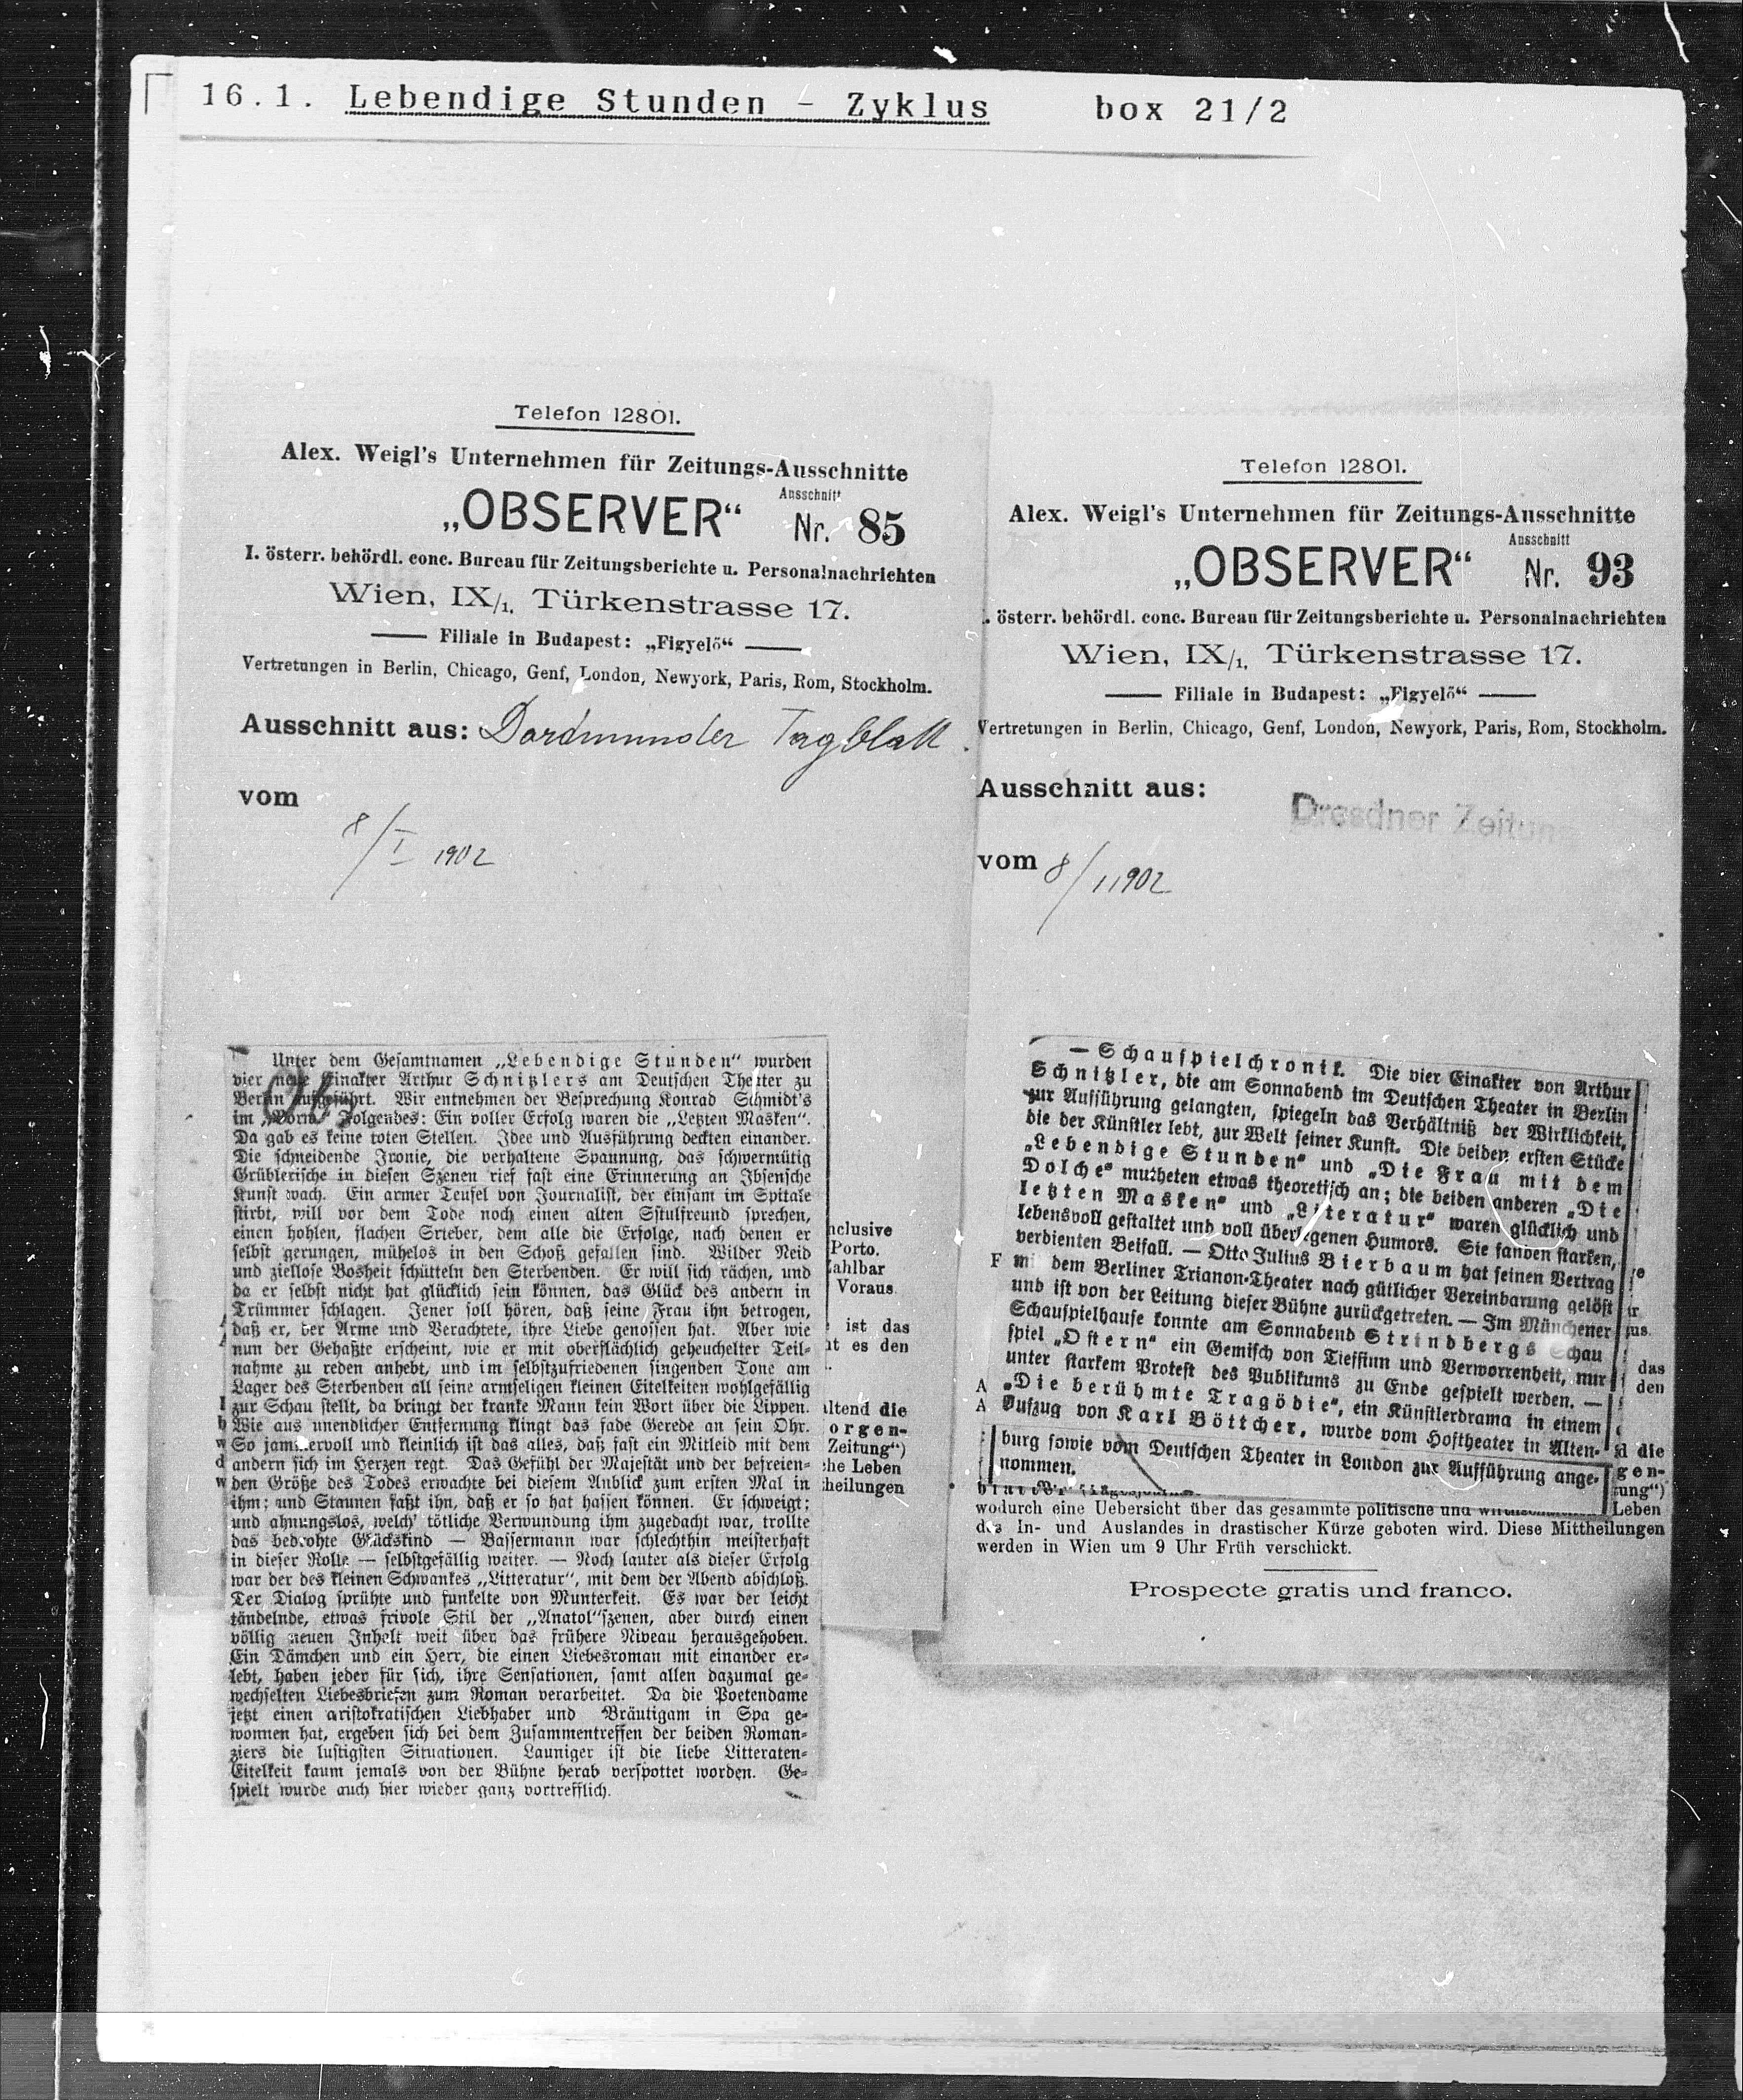 16.1. Lebendige Stunden - Zyklus box 21/2
Telefon 12801.
Alex. Weigl's Unternehmen für Zeitungs-Ausschnitte
„OBSERVER“ Ausschnitt Nr. 85
I. österr. behördl. conc. Bureau für Zeitungsberichte u. Personalnachrichten
Wien, IX/1, Türkenstrasse 17.
Filiale in Budapest: „Figyelő“
Vertretungen in Berlin, Chicago, Genf, London, Newyork, Paris, Rom, Stockholm.
Ausschnitt aus: Dordmunder Tagblatt.
vom
8/I 1902
Unter dem Gesamtnamen „Lebendige Stunden“ wurden
vier neue Einakter Arthur Schnitzlers am Deutschen Theater zu
Berlin aufgeführt. Wir entnehmen der Besprechung Konrad Schmidt's
im Folgendes: Ein voller Erfolg waren die „Letzten Masken“.
Da gab es keine toten Stellen. Idee und Ausführung deckten einander.
Die schneidende Ironie, die verhaltene Spannung, das schwermütig
Grüblerische in diesen Szenen rief fast eine Erinnerung an Ibsensche
Kunst wach. Ein armer Teufel von Journalist, der einsam im Spitale
stirbt, will vor dem Tode noch einen alten Sstulfreund sprechen,
einen hohlen, flachen Srieber, dem alle die Erfolge, nach denen er
selbst gerungen, mühelos in den Schoß gefallen sind. Wilder Neid
und ziellose Bosheit schütteln den Sterbenden. Er will sich rächen, und
da er selbst nicht hat glücklich sein können, das Glück des andern in
Trümmer schlagen. Jener soll hören, daß seine Frau ihn betrogen,
daß er, der Arme und Verachtete, ihre Liebe genossen hat. Aber wie
nun der Gehaßte erscheint, wie er mit oberflächlich geheuchelter Teil-
nahme zu reden anhebt, und im selbstzufriedenen singenden Tone am
Lager des Sterbenden all seine armseligen kleinen Eitelkeiten wohlgefällig
zur Schau stellt, da bringt der kranke Mann kein Wort über die Lippen.
Wie aus unendlicher Entfernung klingt das fade Gerede an sein Ohr.
So jammervoll und kleinlich ist das alles, daß fast ein Mitleid mit dem
andern sich im Herzen regt. Das Gefühl der Majestät und der befreien-
den Größe des Todes erwachte bei diesem Anblick zum ersten Mal in
ihm; und Staunen faßt ihn, daß er so hat hassen können. Er schweigt;
und ahnungslos, welch' tötliche Verwundung ihm zugedacht war, trollte
das bedrohte Glückskind — Bassermann war schlechthin meisterhaft
in dieser Rolle — selbstgefällig weiter. — Noch lauter als dieser Erfolg
war der des kleinen Schwankes „Litteratur“, mit dem der Abend abschloß.
Der Dialog sprühte und funkelte von Munterkeit. Es war der leicht
tändelnde, etwas frivole Stil der „Anatol“szenen, aber durch einen
völlig neuen Inhalt weit über das frühere Niveau herausgehoben.
Ein Dämchen und ein Herr, die einen Liebesroman mit einander er-
lebt, haben jeder für sich, ihre Sensationen, samt allen dazumal ge-
wechselten Liebesbriefen zum Roman verarbeitet. Da die Poetendame
jetzt einen aristokratischen Liebhaber und Bräutigam in Spa ge-
wonnen hat, ergeben sich bei dem Zusammentreffen der beiden Roman-
ziers die lustigsten Situationen. Launiger ist die liebe Litteraten-
Eitelkeit kaum jemals von der Bühne herab verspottet worden. Ge-
spielt wurde auch hier wieder ganz vortrefflich.
nclusive
Porto.
Zahlbar
Voraus.
ist das
es den
ltend die
orgen-
Zeitung“)
che Leben
theilungen
Telefon 12801.
Alex. Weigl's Unternehmen für Zeitungs-Ausschnitte
„OBSERVER“ Ausschnitt Nr. 93
. österr. behördl. conc. Bureau für Zeitungsberichte u. Personalnachrichten
Wien, IX/1, Türkenstrasse 17.
Filiale in Budapest: „Figyelő“
Vertretungen in Berlin, Chicago, Genf, London, Newyork, Paris, Rom, Stockholm.
Ausschnitt aus:
Dresdner Zeitun
vom 8/1 1902
— Schauspielchronik. Die vier Einakter von Arthur
Schnitzler, die am Sonnabend im Deutschen Theater in Berlin
zur Aufführung gelangten, spiegeln das Verhältniß der Wirklichkeit,
die der Künstler lebt, zur Welt seiner Kunst. Die beiden ersten Stücke
„Lebendige Stunden“ und „Die Frau mit dem
Dolche“ mutheten etwas theoretisch an; die beiden anderen „Die
letzten Masken“ und „Literatur“ waren glücklich und
lebensvoll gestaltet und voll überlegenen Humors. Sie fanden starken,
verdienten Beifall. — Otto Julius Bierbaum hat seinen Vertrag
mi dem Berliner Trianon-Theater nach gütlicher Vereinbarung gelöst
und ist von der Leitung dieser Bühne zurückgetreten. — Im Münchener
Schauspielhause konnte am Sonnabend Strindbergs Schau
spiel „Ostern“ ein Gemisch von Tiefsinn und Verworrenheit, nur
unter starkem Protest des Publikums zu Ende gespielt werden. —
„Die berühmte Tragödie“, ein Künstlerdrama in einem
Aufzug von Karl Böttcher, wurde vom Hoftheater in Alten-
burg sowie vom Deutschen Theater in London zur Aufführung ange-
nommen.
das
den
die
gen-
tung“)
Leben
wodurch eine Uebersicht über das gesammte politische und
des In- und Auslandes in drastischer Kürze geboten wird. Diese Mittheilungen
werden in Wien um 9 Uhr Früh verschickt.
Prospecte gratis und franco.